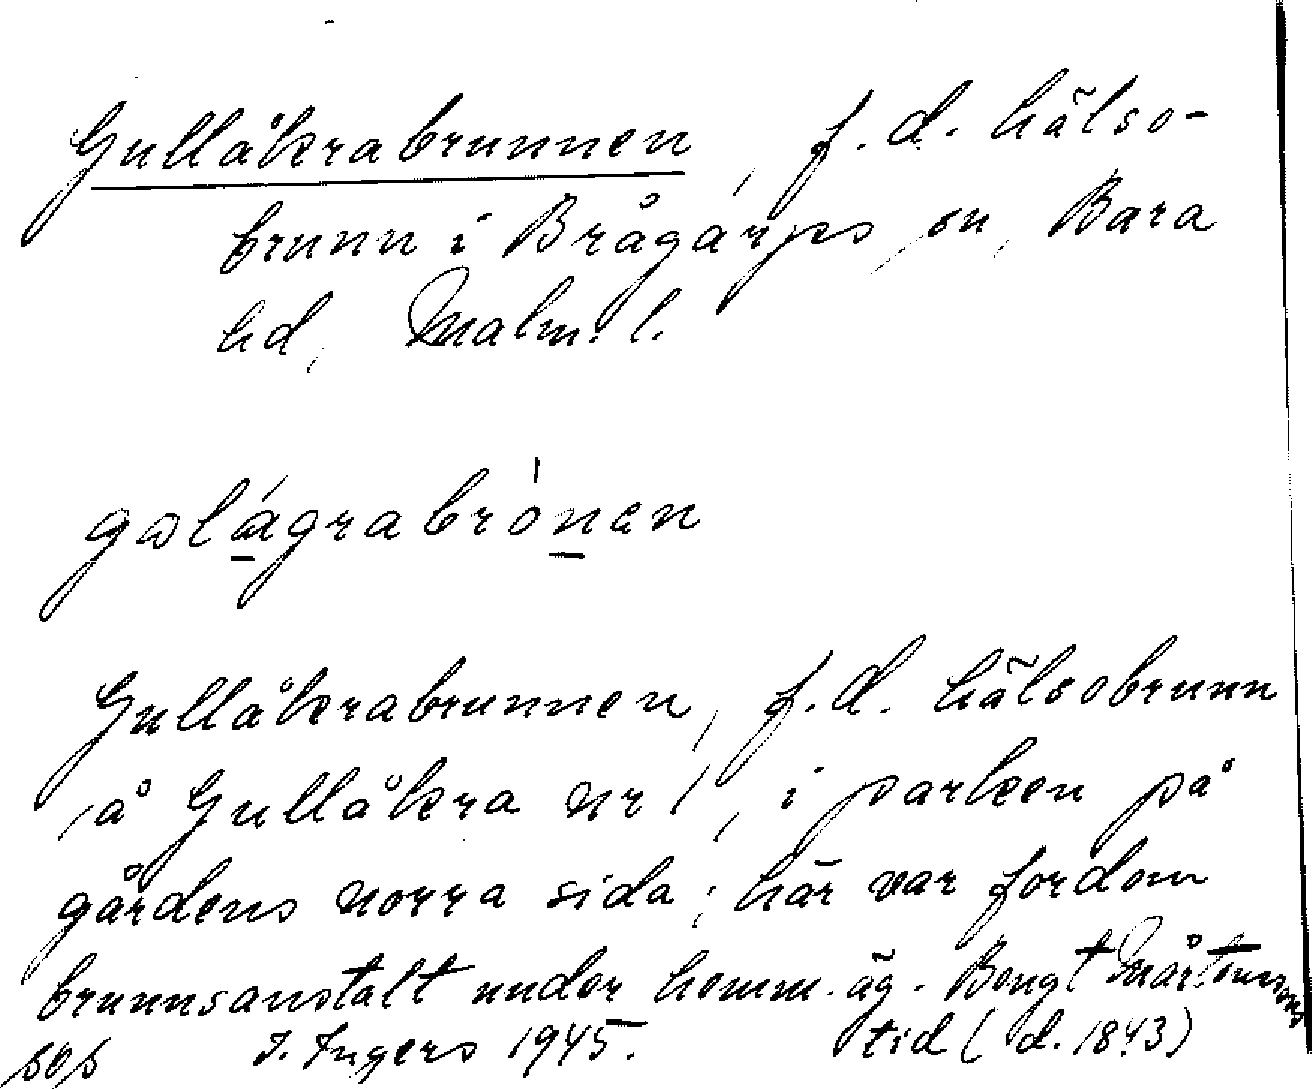 Gullåkrabrunnen, f.d. hälso-
brunn i Brågarps sn, Bara
hd, Malm. l.
gɷlágrabrònen
Gullåkrabrunnen, f.d. hälsobrunn
å Gullåkra nr 1, i parken på
gårdens norra sida; här var fordom
brunnsanstalt under hemm.äg. Bengt Mårtenssons
tid (d. 1843)
I. Ingers 1945.